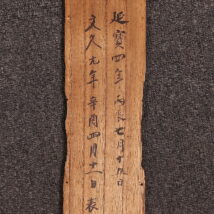 延寳四年丙辰七月十九日
文久元年辛酉四月十一日表